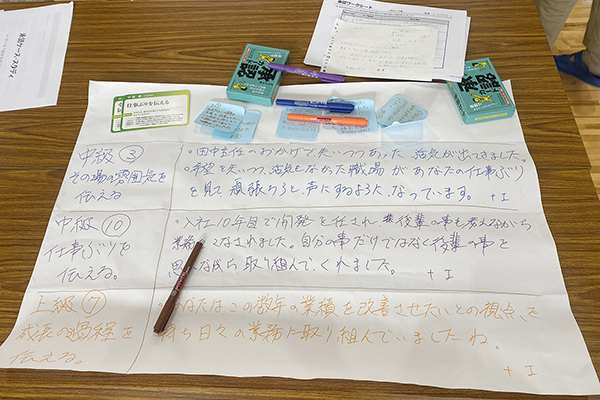 承認ケース・スタディ
承認ワークシート
承認
承認
仕事ぶりを伝える
中級③
その場の雰囲気を
伝える
・田中主任のおかげで失いつつあった活気が出てきました。
希望を失いつつ、活気もなかった職場があなたの仕事ぶり
を見て、頑張ろうと声にするようになっています。 +I
中級⑩
仕事ぶりを
伝える。
・入社10年目で開発を任され、後輩の事も考えながら
業務こなされました。自分の事だけではなく後輩の事を
思いながら取り組んでくれました。 +I
上級⑦
成長の過程を
伝える。
・あなたはこの数年の業績を改善させたいとの視点を
持ち日々の業務に取り組んでいましたね。
+I